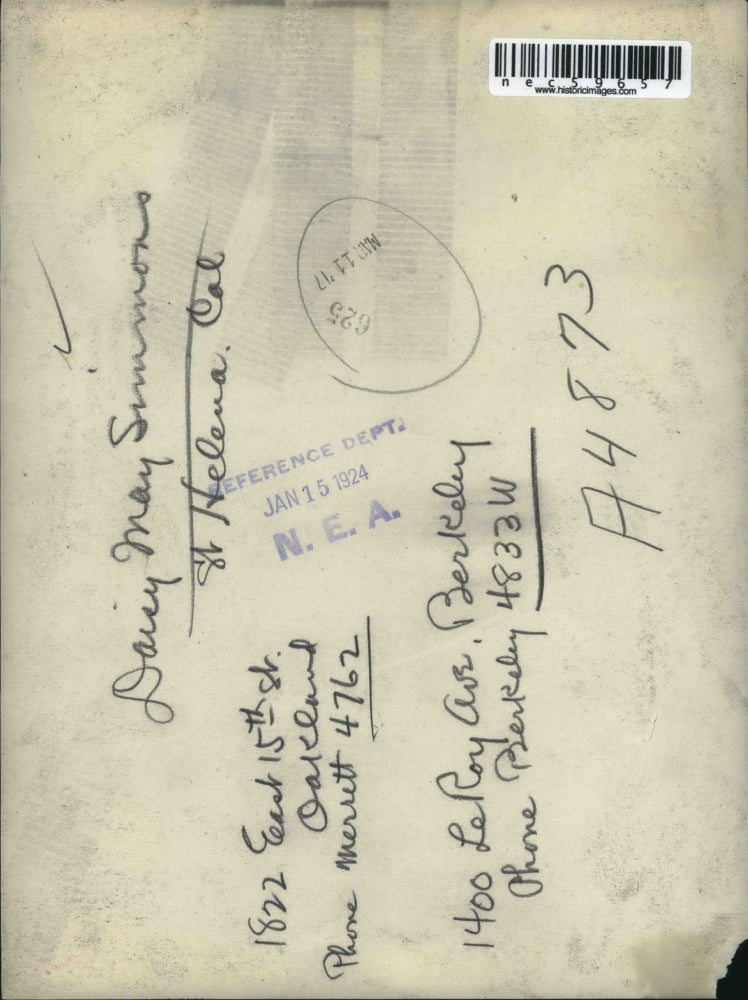 nec59657
www.historicimages.com
Daisy May Simmons
St Helena. Cal
MAR 11 '17
625
REFERENCE DEPT.
JAN 15 1924
N. E. A.
1822 East 15th St.
Oakland
Phone Merritt 4762
1400 LeRoy Ave. Berkeley
Phone Berkeley 4833W
A4873